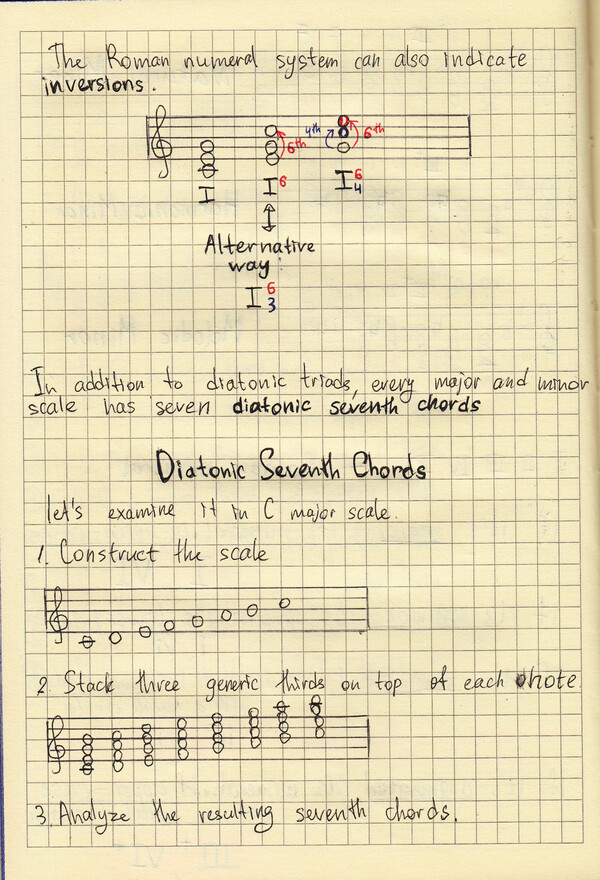 The Roman numeral system can also indicate
inversions.
4th 6th 6th
I I6 I64
Alternative
way:
I63
In addition to diatonic triads, every major and minor
scale has seven diatonic seventh chords
Diatonic Seventh Chords
let's examine it in C major scale.
1. Construct the scale
2. Stack three generic thirds on top of each note
3. Analyze the resulting seventh chords.